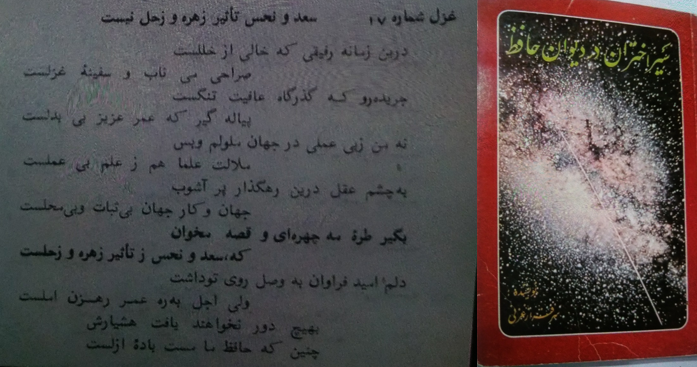 غزل شماره ۱۷
سعد و نحس تأثیر زهره و زحل نیست
درین زمانه رفیقی که خالی از خللست
صراحی می ناب و سفینهٔ غزلست
جریده‌رو که گذرگاه عافیت تنگست
پیاله گیر که عمر عزیز بی بدلست
نه من زبی عملی در جهان ملولم وبس
ملالت علما هم ز علم بی عملست
به‌چشم عقل درین رهگذار پر آشوب
جهان وکار جهان بی‌ثبات وبی‌محلست
بگیر طرهٔ مه چهره‌ای و قصه مخوان
که، سعد و نحس ز تأثیر زهره و زحلست
دلم امید فراوان به وصل روی توداشت
ولی اجل به‌ره عمر رهزن املست
بهیچ دور نخواهند یافت هشیارش
چنین که حافظ ما مست بادهٔ ازلست
سیر اختران در دیوان حافظ
نویسنده